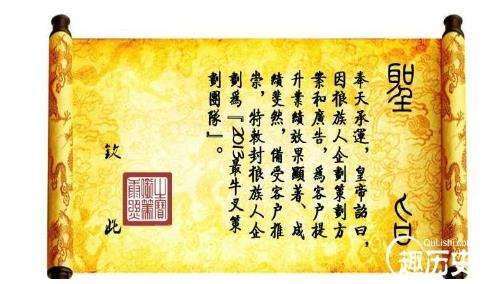 聖旨
奉天承運，皇帝詔曰，
因狼族人企劃策劃方
案和廣告，為客户提
升業績效果顯著、成
績斐然，備受客户推
崇，特敕封狼族人企
劃為『2013最牛叉策
劃團隊』。
欽此
QuLishi.com
趣历史